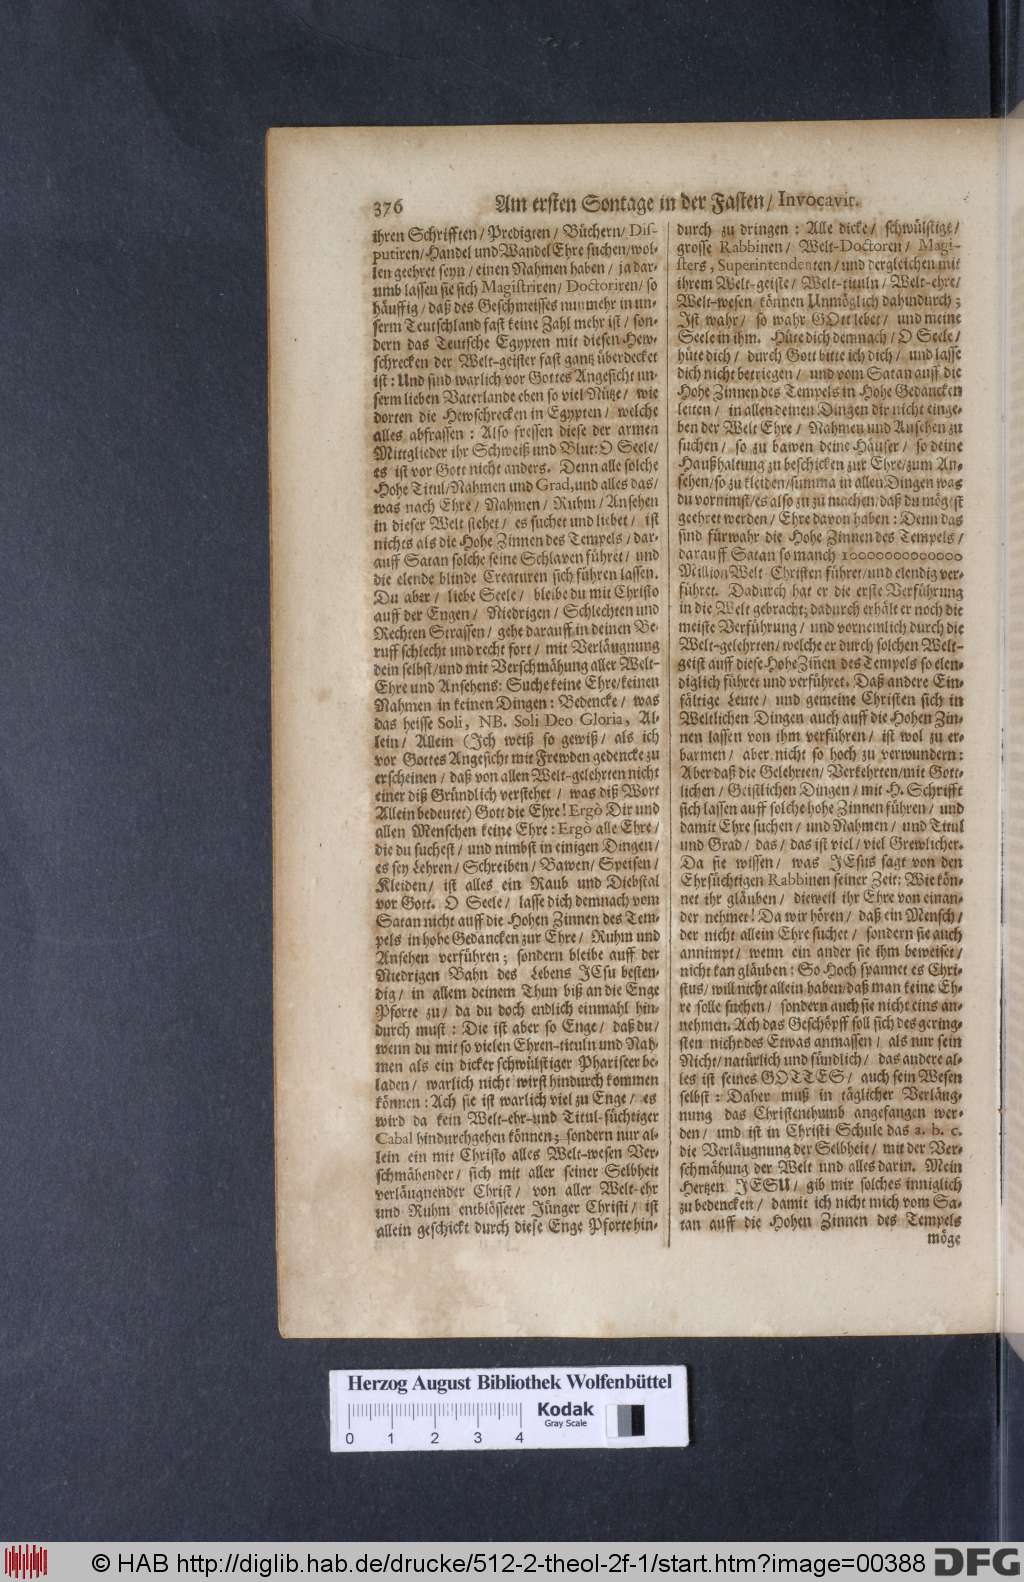 376 Am ersten Sontage in der Fasten/ Invocavit.
ihren Schrifften/ Predigten/ Büchern/ Dis-
putiren/ Handel und Wandel Ehre suchen/ wol-
len geehret seyn/ einen Nahmen haben/ ja dar-
umb lassen sie sich Magistriren/ Doctoriren/ so
häuffig/ daß des Geschmeisses nunmehr in un-
serm Teutschland fast keine Zahl mehr ist/ son-
dern das Teutsche Egypten mit diesen Hew-
schrecken der Welt-geister fast gantz überdecket
ist: Und sind warlich vor Gottes Angesicht un-
serm lieben Vaterlande eben so viel Nütze/ wie
dorten die Hewschrecken in Egypten/ welche
alles abfrassen: Also fressen diese der armen
Mittglieder ihr Schweiß und Blut: O Seele/
es ist vor Gott nicht anders. Denn alle solche
Hohe Titul/ Nahmen und Grad, und alles das/
was nach Ehre/ Nahmen/ Ruhm/ Ansehen
in dieser Welt stehet/ es suchet und liebet/ ist
nichts als die Hohe Zinnen des Tempels/ dar-
auff Satan solche seine Schlaven führet/ und
die elende blinde Creaturen sich führen lassen.
Du aber/ liebe Seele/ bleibe du mit Christo
auff der Engen/ Niedrigen/ Schlechten und
Rechten Strassen/ gehe darauff in deinen Be-
ruff schlecht und recht fort/ mit Verläugnung
dein selbst/ und mit Verschmähung aller Welt-
Ehre und Ansehens: Suche keine Ehre/ keinen
Nahmen in keinen Dingen: Bedencke/ was
das heisse Soli, NB. Soli Deo Gloria, Al-
lein/ Allein (Ich weiß so gewiß/ als ich
vor Gottes Angesicht mit Frewden gedencke zu
erscheinen/ daß von allen Welt-gelehrten nicht
einer diß Gründlich verstehet/ was diß Wort
Allein bedeutet) Gott die Ehre! Ergò Dir und
allen Menschen keine Ehre: Ergò alle Ehre/
die du suchest/ und nimbst in einigen Dingen/
es sey Lehren/ Schreiben/ Bawen/ Speisen/
Kleiden/ ist alles ein Raub und Diebstal
vor Gott. O Seele/ lasse dich demnach vom
Satan nicht auff die Hohen Zinnen des Tem-
pels in hohe Gedancken zur Ehre/ Ruhm und
Ansehen verführen; sondern bleibe auff der
Niedrigen Bahn des Lebens JEsu besten-
dig/ in allem deinem Thun biß an die Enge
Pforte zu/ da du doch endlich einmahl hin-
durch must: Die ist aber so Enge/ daß du/
wenn du mit so vielen Ehren-tituln und Nah-
men als ein dicker schwülstiger Phariseer be-
laden/ warlich nicht wirst hindurch kommen
können: Ach sie ist warlich viel zu Enge/ es
wird da kein Welt-ehr-und Titul-süchtiger
Cabal hindurchgehen können; sondern nur al-
lein ein mit Christo alles Welt-wesen Ver-
schmähender/ sich mit aller seiner Selbheit
verläugnender Christ/ von aller Welt-ehr
und Ruhm entblösseter Jünger Christi/ ist
allein geschickt durch diese Enge Pforte hin-
durch zu dringen: Alle dicke/ schwülstige/
grosse Rabbinen/ Welt-Doctoren/ Magi-
sters, Superintendenten/ und dergleichen mit
ihrem Welt-geiste/ Welt-tituln/ Welt-ehre/
Welt-wesen können Unmöglich dahindurch;
Ist wahr/ so wahr GOtt lebet/ und meine
Seele in ihm. Hüte dich demnach/ O Seele/
hüte dich/ durch Gott bitte ich dich/ und lasse
dich nicht betriegen/ und vom Satan auff die
Hohe Zinnen des Tempels in Hohe Gedancken
leiten/ in allen deinen Dingen dir nicht einge-
ben der Welt Ehre/ Nahmen und Ansehen zu
suchen/ so zu bawen deine Häuser/ so deine
Haußhaltung zu beschicken zur Ehre/ zum An-
sehen/ so zu kleiden/ summa in allen Dingen was
du vornimst/ es also zu zu machen/ daß du mögst
geehret werden/ Ehre davon haben: Denn das
sind fürwahr die Hohe Zinnen des Tempels/
darauff Satan so manch 1000000000000
Million Welt Christen führet/ und elendig ver-
führet. Dadurch hat er die erste Verführung
in die Welt gebracht; dadurch erhält er noch die
meiste Verführung/ und vornemlich durch die
Welt-gelehrten/ welche er durch solchen Welt-
geist auff diese Hohe Ziñen des Tempels so elen-
diglich führet und verführet. Daß andere Ein-
fältige Leute/ und gemeine Christen sich in
Weltlichen Dingen auch auff die Hohen Zin-
nen lassen von ihm verführen/ ist wol zu er-
barmen/ aber nicht so hoch zu verwundern:
Aber daß die Gelehrten/ Verkehrten/ mit Gött-
lichen/ Geistlichen Dingen/ mit H. Schrifft
sich lassen auff solche hohe Zinnen führen/ und
damit Ehre suchen/ und Nahmen/ und Titul
und Grad/ das/ das ist viel/ viel Grewlicher.
Da sie wissen/ was JEsus sagt von den
Ehrsüchtigen Rabbinen seiner Zeit: Wie kön-
net ihr gläuben/ dieweil ihr Ehre von einan-
der nehmet! Da wir hören/ daß ein Mensch/
der nicht allein Ehre suchet/ sondern sie auch
annimpt/ wenn ein ander sie ihm beweiset/
nicht kan gläuben: So Hoch spannet es Chri-
stus/ will nicht allein haben/ daß man keine Eh-
re solle suchen/ sondern auch sie nicht eins an-
nehmen. Ach das Geschöpff soll sich des gering-
sten nicht des Etwas anmassen/ als nur sein
Nicht/ natürlich und sündlich/ das andere al-
les ist seines GOTTES/ auch sein Wesen
selbst: Daher muß in täglicher Verläug-
nung das Christenthumb angefangen wer-
den/ und ist in Christi Schule das a. b. c.
die Verläugnung der Selbheit/ mit der Ver-
schmähung der Welt und alles darin. Mein
Hertzen JESU/ gib mir solches inniglich
zu bedencken/ damit ich nicht mich vom Sa-
tan auff die Hohen Zinnen des Tempels
möge
Herzog August Bibliothek Wolfenbüttel
Kodak
Gray Scale
0 1 2 3 4
© HAB http://diglib.hab.de/drucke/512-2-theol-2f-1/start.htm?image=00388 DFG